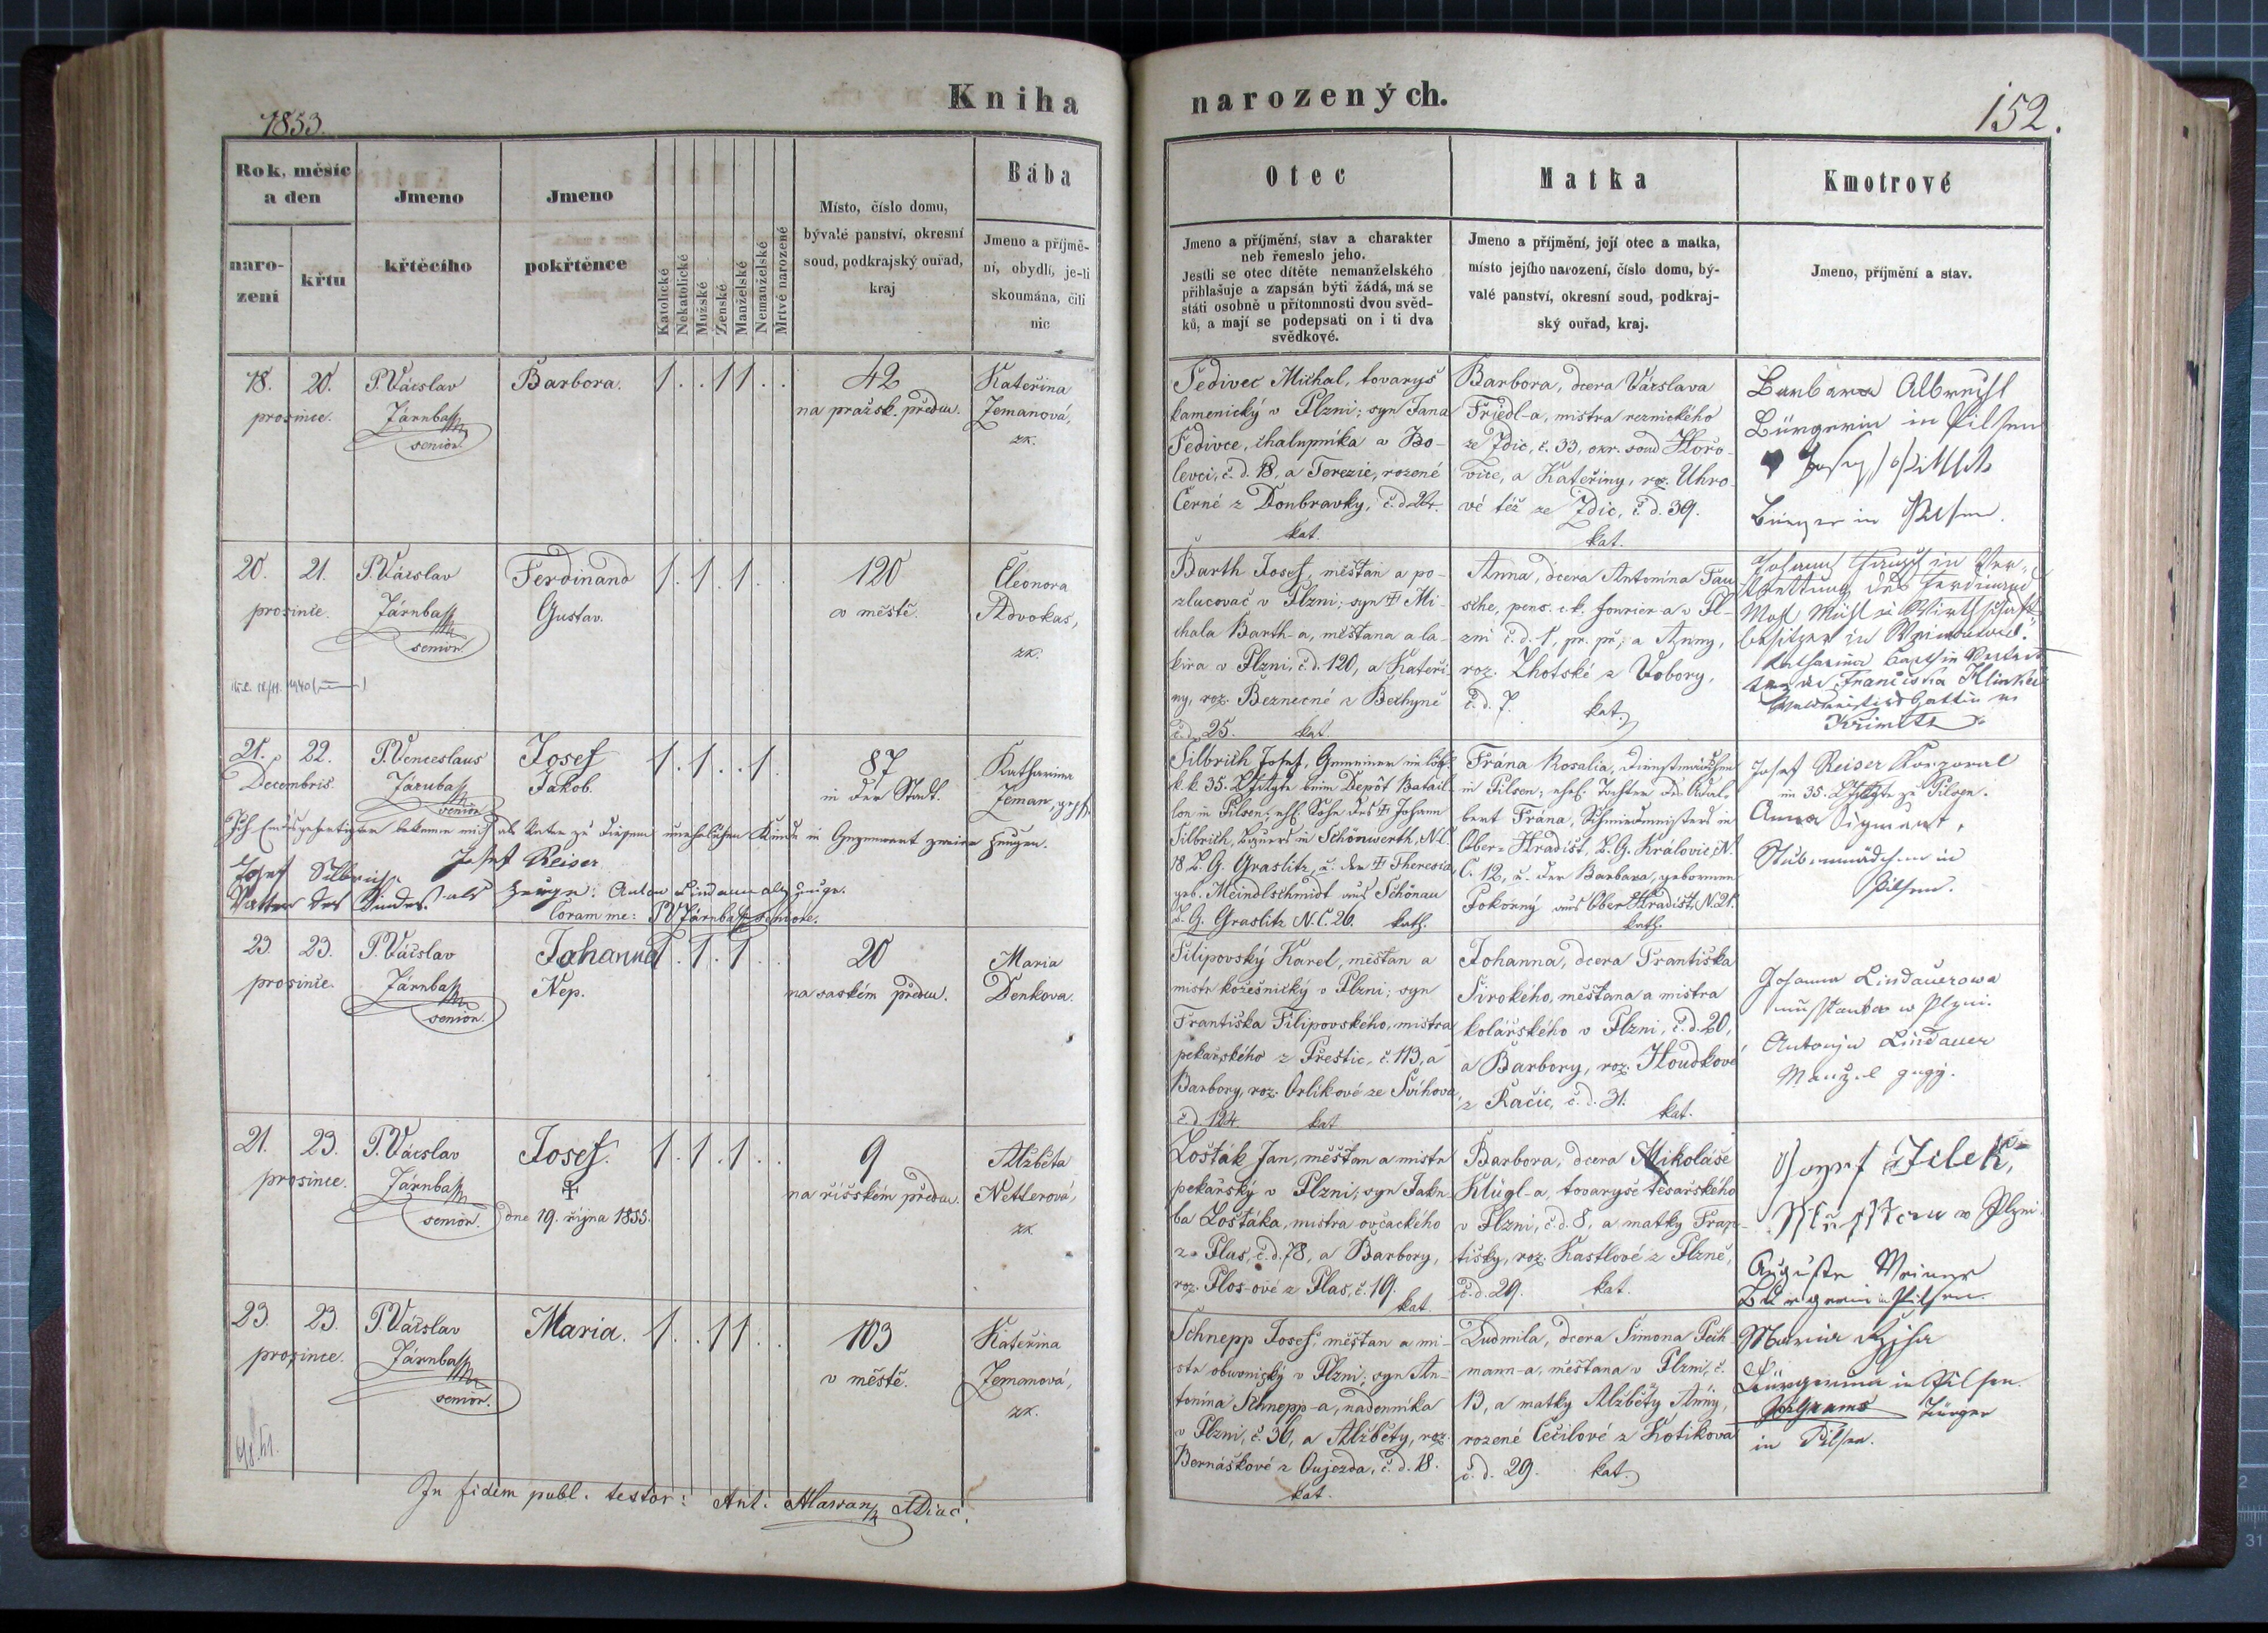 Kniha
1853.
Rok, měsíc
a den
naro-
zení
křtu
Jmeno
křtěcího
Jmeno
pokřtěnce
Katolické
Nekatolické
Mužské
Ženské
Manželské
Nemanželské
Mrtvě narozené
Místo, číslo domu,
bývalé panství, okresní
soud, podkrajský ouřad,
kraj
Bába
Jmeno a příjmě-
ní, obydlí, je-li
skoumána, čili
nic
18. 20. P. Václav Barbora. 1 . . 1 1 . . 42 Kateřina
prosince. na pražsk. předm. Zemanová,
senior. zk.
20. 21. P. Václav Ferdinand 1 . 1 . 1 . . 120 Eleonora
prosince. Gustav. v městě. Advokas,
senior. zk.
21. 22. P. Venceslaus Josef 1 . 1 . . 1 . 87 Katharina
Decembris Jakob. in der Stadt. Zeman,
senior
Ich Endesgefertigter bekenne mich als Vater zu diesem unehelichen Kinde in Gegenwart zweier Zeugen.
Josef Silbrich Josef Reiser
Vatter des Kindes. als Zeuge: Anton Lindauer als Zeuge.
Coram me:
23. 23. P. Václav Johanna 1 . 1 . 1 . . 20 Maria
prosince. Nep. na saském předm. Denkova.
senior.
21. 23. P. Václav Josef. 1 . 1 . 1 . . 9 Alžběta
prosince. na říšském předm. Netlerová,
senior. dne 19. října 1855. zk.
23. 23. P. Václav Maria. 1 . . 1 1 . . 103 Kateřina
prosince. v městě. Zemanová,
senior. zk.
In fidem publ. testor: Ant.
narozených.
152.
Otec
Jmeno a příjmění, stav a charakter
neb řemeslo jeho.
Jestli se otec dítěte nemanželského
přihlašuje a zapsán býti žádá, má se
státi osobně u přítomnosti dvou svěd-
ků, a mají se podepsati on i ti dva
svědkové.
Matka
Jmeno a příjmění, její otec a matka,
místo jejího narození, číslo domu, bý-
valé panství, okresní soud, podkraj-
ský ouřad, kraj.
Kmotrové
Jmeno, příjmění a stav.
Šedivec Michal, tovaryš
kamenický v Plzni; syn Jana
Šedivce, chalupníka v Bo-
levci, č. d. 18, a Terezie, rozené
Černé z Doubravky, č. d. 24.
kat.
Barbora, dcera Václava
Friedl-a, mistra řeznického
ze Zdic, č. 33, okr. soud Hořo-
vice, a Kateřiny, roz. Uhro-
vé též ze Zdic, č. d. 39.
kat.
Barbara Albrecht
Bürgerin in Pilsen
Bürger in Pilsen.
Barth Josef, měšťan a po-
zlacovač v Plzni; syn † Mi-
chala Barth-a, měšťana a la-
kíra v Plzni, č. d. 120, a Kateři-
ny, roz. Beznecné z Bechyně
č. d. 25. kat.
Anna, dcera Antonína Tau-
sche, pens. c. k. fourier-a v Pl-
zni č. d. 1, pr. př., a Anny,
roz. Lhotské z Vobory,
č. d. 7. kat.
Johann Tausch in Ver-
trettung des Ferdinand
besitzer in
Katharina Barth in
der Franciska
Silbrich Josef, Gemeiner im löbl.
k. k. 35. beim Depôt Batail-
lon in Pilsen; ehl. Sohn des † Johann
Silbrich, in Schönwerth, N. C.
18 B. G. Graslitz, u. der † Theresia
geb. Meindlschmidt aus Schönau
B. G. Graslitz N. C. 26. kath.
Frána Rosalia, Dienstmädchen
in Pilsen; ehel. Tochter des Adal-
bert Frána, Schmiedmeisters in
Ober-Hradišt, B. G. Kralovic, N.
C. 12, u. der Barbara, gebornen
Pokorný aus Ober Hradišt, N. 21.
kath.
Josef Reiser Korporal
im 35. zu Pilsen.
Anna Sigmant,
Stubenmädchen in
Pilsen.
Filipovský Karel, měšťan a
mistr kožešnický v Plzni; syn
Františka Filipovského, mistra
pekařského z Přeštic, č. 113, a
Barbory, roz. Orlíkové ze Švihova,
č. d. 124. kat.
Johanna, dcera Františka
Širokého, měšťana a mistra
kolářského v Plzni, č. d. 20,
a Barbory, roz. Houdkové
z Račic, č. d. 31. kat.
Johanna Lindauerowa
w Plzni.
Antonín Lindauer
Manžel
Lošťák Jan, měšťan a mistr
pekařský v Plzni; syn Jaku-
ba Lošťáka, mistra ovčáckého
z Plas, č. d. 78, a Barbory,
roz. Plos-ové z Plas, č. 19.
kat.
Barbora, dcera Mikoláše
Klügl-a, tovaryše tesařského
v Plzni, č. d. 8, a matky Fran-
tišky, roz. Kastlové z Plzně,
č. d. 29. kat.
Josef Jilek,
w Plzni.
Auguste Weiner
Bürgerin in Pilsen.
Schnepp Josef, měšťan a mi-
str obuvnický v Plzni; syn An-
tonína Schnepp-a, nádenníka
v Plzni, č. 36, a Alžběty, roz.
Bernáškové z Oujezda, č. d. 18.
kat.
Ludmila, dcera Šimona Peih-
mann-a, měšťana v Plzni, č.
13, a matky Alžběty Anny,
rozené Čečilové z Kotikova
č. d. 29. kat.
Maria
Bürgerinn in Pilsen.
in Pilsen.